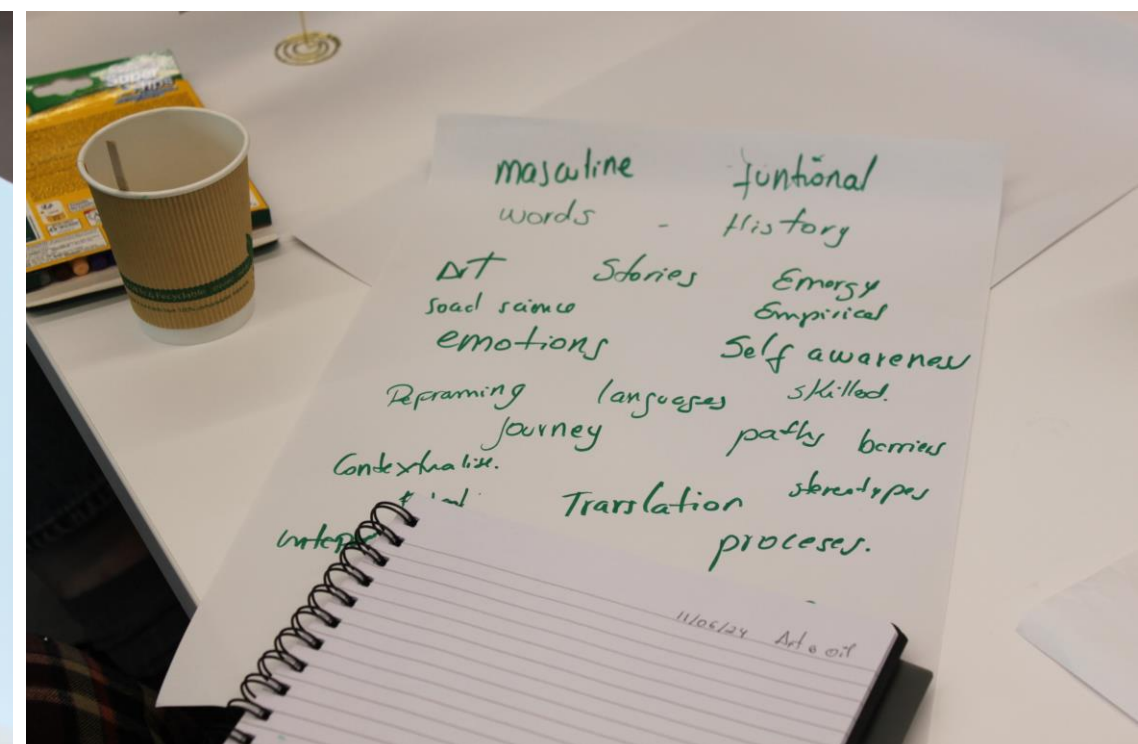 Super
masculine funtional
words - History
Art Stories Energy
Empirical
emotions Self awareness
languages skilled.
Journey paths barriers
Contextualise.
Translation stereotypes
proceses.
11/06/24 Art & oil